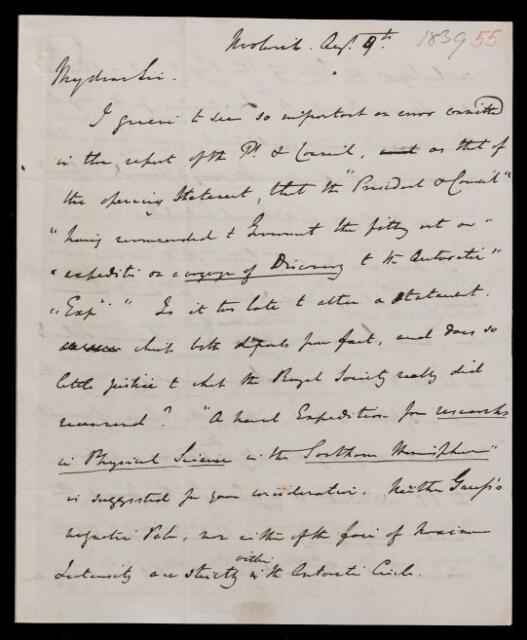 Woolwich. Aug. 9th 1839 55
My dear Sir.
I grieve to see so important an error committed
in the report of the P. & Council, as that of
the opening Statement, that the "President & Council"
"having recommended to Government the fitting out an"
"expedition on a voyage of Discovery to the Antarctic"
"Exp." Is it too late to alter a statement
which both departs from fact, and does so
little justice to what the Royal Society really did
recommend? "A naval Expedition for researches
in Physical Science in the Southern Hemisphere"
is suggested for your consideration. Neither Gauss's
magnetic Pole, nor either of the foci of maximum
Intensity are strictly within the Antarctic Circle.